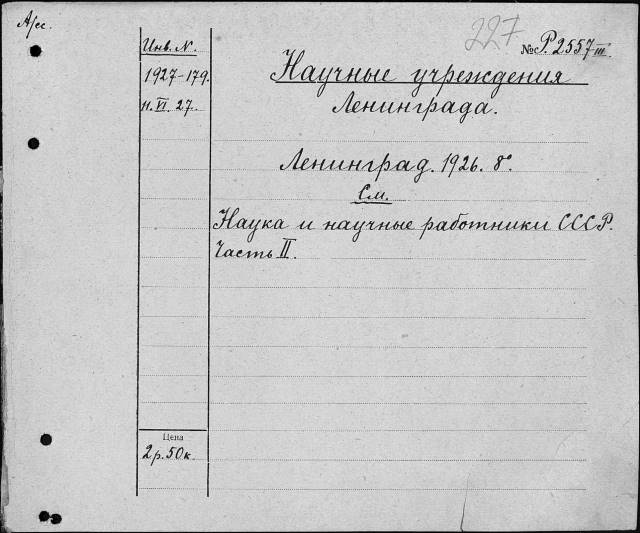 А/сс.
227
№ Р. 2557 III
Инв. N.
1927-179.
Научные учреждения
Ленинграда.
н. VI. 27.
Ленинград. 1926. 8°.
См.
Наука и научные работники СССР.
Часть II.
Цена
2 р. 50 к.